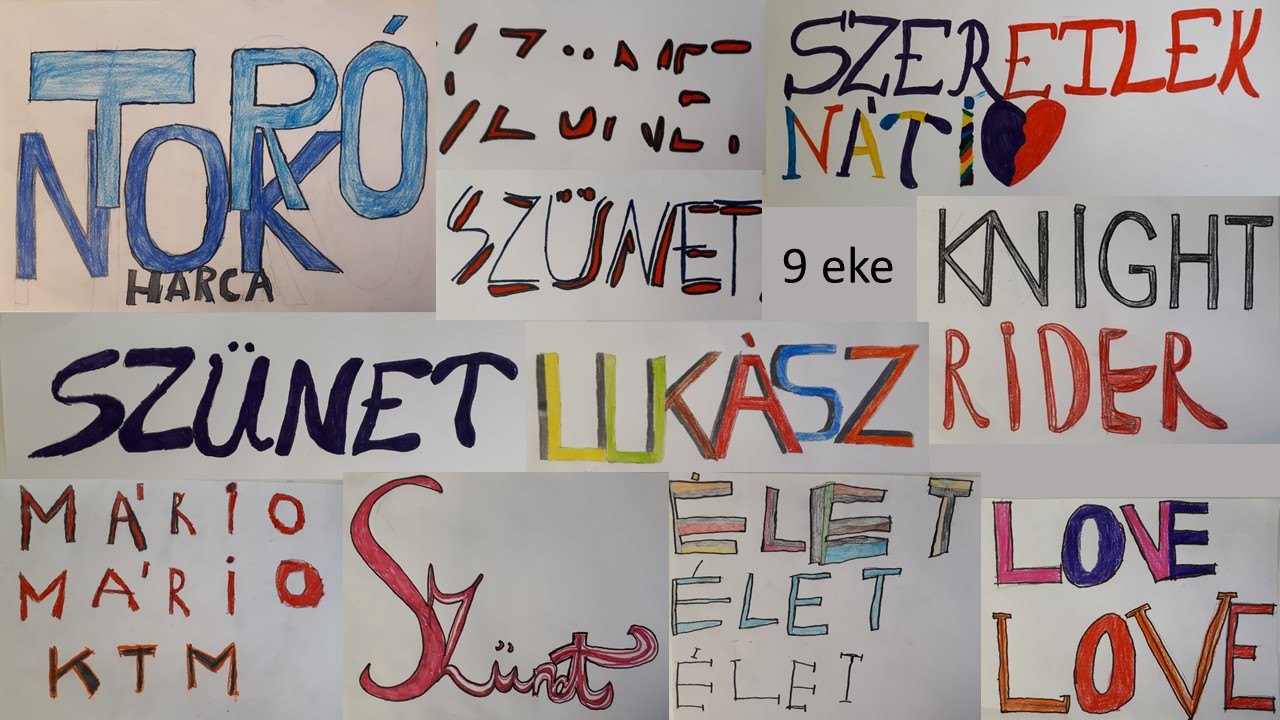 TRÓ
NOK
HARCA
SZÜNET
SZERETLEK
NÁTI
9 eke
KNIGHT
RIDER
SZÜNET
LUKÀSZ
MÁRIO
MÁRIO
KTM
Szünet
ÉLET
ÉLET
ÉLET
LOVE
LOVE